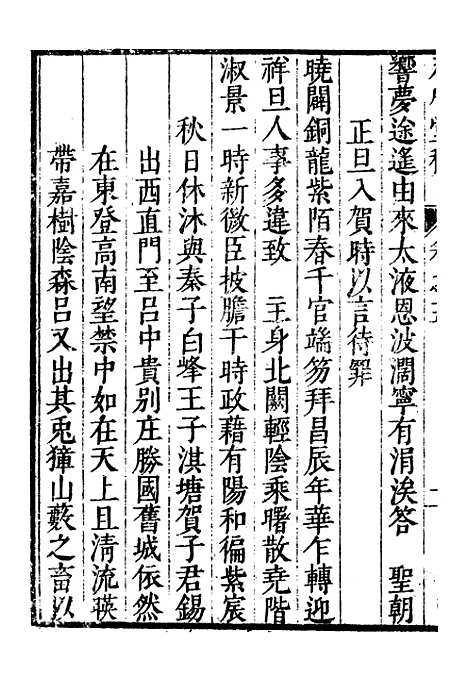 響夢途遙由來太液恩波濶寧有涓涘答　聖朝
正旦入賀時以言待罪
曉闢銅龍紫陌春千官端笏拜昌辰年華乍轉迎
祥旦人事多違致　主身北闕輕陰乘曙散堯階
淑景一時新微臣披膽干時政藉有陽和徧紫宸
秋日休沐與秦子白峰王子淇塘賀子君錫
出西直門至呂中貴别庄勝國舊城依然
在東登高南望禁中如在天上且清流萦
帶嘉樹陰森呂又出其兎獐山藪之畜以